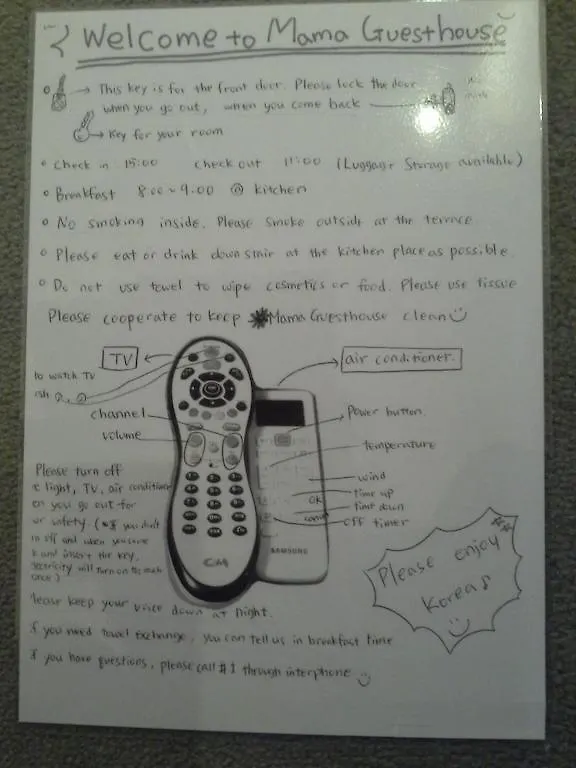 Welcome to Mama Guesthouse
This key is for the front door. Please lock the door
when you go out, when you come back
Key for your room
Check in 15:00 Check out 11:00 (Luggage Storage available)
Breakfast 8:00~9:00 @ kitchen
No smoking inside. Please smoke outside at the terrace
Please eat or drink down stair at the kitchen place as possible.
Do not use towel to wipe cosmetics or food. Please use tissue
Please cooperate to keep Mama Guesthouse clean
TV
air conditioner.
to watch TV
channel
volume
Power button
temperature
wind
time up
OK
time down
cancel
off timer
SAMSUNG
Please turn off
light, TV, air conditioner
you go out for
safety. (If you don't
off and when you come
and insert the key,
electricity will turn on
once)
Please enjoy
Korea
Please keep your voice down at night.
If you need towel exchange, you can tell us in breakfast time
If you have questions, please call #1 through interphone